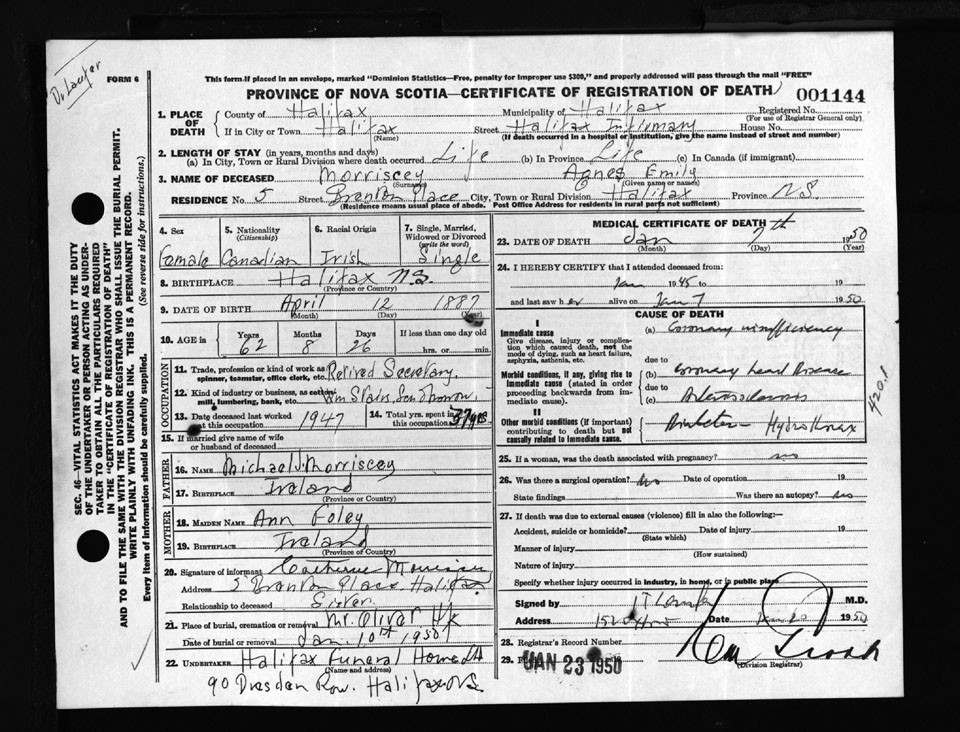 Dr Laufer
FORM 6
This form if placed in an envelope, marked "Dominion Statistics—Free, penalty for improper use $300," and properly addressed will pass through the mail "FREE"
PROVINCE OF NOVA SCOTIA—CERTIFICATE OF REGISTRATION OF DEATH 001144
1. PLACE OF DEATH
County of Halifax Municipality of Halifax Registered No.
(For use of Registrar General only)
If in City or Town Halifax Street Halifax Infirmary House No.
(Name) (If death occurred in a hospital or institution, give the name instead of street and number)
2. LENGTH OF STAY (in years, months and days)
(a) In City, Town or Rural Division where death occurred Life (b) In Province Life (c) In Canada (if immigrant)
3. NAME OF DECEASED Morriscey Agnes Emily
(Surname) (Given name or names)
RESIDENCE No. 5 Street Brenton Place City, Town or Rural Division Halifax Province N.S.
(Residence means usual place of abode. Post Office Address for residents in rural parts not sufficient)
SEC. 46—VITAL STATISTICS ACT MAKES IT THE DUTY
OF THE UNDERTAKER OR PERSON ACTING AS UNDER-
TAKER TO OBTAIN ALL THE PARTICULARS REQUIRED
IN THE "CERTIFICATE OF REGISTRATION OF DEATH"
AND TO FILE THE SAME WITH THE DIVISION REGISTRAR WHO SHALL ISSUE THE BURIAL PERMIT.
WRITE PLAINLY WITH UNFADING INK. THIS IS A PERMANENT RECORD.
Every item of information should be carefully supplied. (See reverse side for instructions.)
4. Sex 5. Nationality (Citizenship) 6. Racial Origin 7. Single, Married, Widowed or Divorced (write the word)
Female Canadian Irish Single
8. BIRTHPLACE Halifax N.S.
(Province or Country)
9. DATE OF BIRTH April 12 1887
(Month) (Day) (Year)
10. AGE in Years Months Days If less than one day old
62 8 26 hrs. or min.
OCCUPATION
11. Trade, profession or kind of work as spinner, teamster, office clerk, etc. Retired Secretary
12. Kind of industry or business, as cotton mill, lumbering, bank, etc. Wm Stairs, Son & Morrow
13. Date deceased last worked at this occupation 1947 14. Total yrs. spent in this occupation 37 yrs
15. If married give name of wife or husband of deceased
FATHER
16. NAME Michael J. Morriscey
17. BIRTHPLACE Ireland
(Province or Country)
MOTHER
18. MAIDEN NAME Ann Foley
19. BIRTHPLACE Ireland
(Province or Country)
20. Signature of informant Catherine Morriscey
Address 5 Brenton Place Halifax
Relationship to deceased Sister
21. Place of burial, cremation or removal Mt. Olivet Hfx
Date of burial or removal Jan. 10th 1950
22. UNDERTAKER Halifax Funeral Home Ltd
(Name and address)
90 Dresden Row. Halifax N.S.
MEDICAL CERTIFICATE OF DEATH
23. DATE OF DEATH Jan 7th 1950
(Month) (Day) (Year)
24. I HEREBY CERTIFY that I attended deceased from:
Jan 1945 to 19
and last saw her alive on Jan 7 1950
CAUSE OF DEATH
I
Immediate cause
Give disease, injury or complication which caused death, not the mode of dying, such as heart failure, asphyxia, asthenia, etc.
(a) Coronary insufficiency
due to
Morbid conditions, if any, giving rise to immediate cause (stated in order proceeding backwards from immediate cause).
Coronary heart Disease
due to
(c) Arteriosclerosis
II
Other morbid conditions (if important) contributing to death but not causally related to immediate cause.
Diabetes - Hydrothorax
420.1
25. If a woman, was the death associated with pregnancy? no
26. Was there a surgical operation? No Date of operation 19
State findings Was there an autopsy? no
27. If death was due to external causes (violence) fill in also the following:—
Accident, suicide or homicide? Date of injury 19
(State which)
Manner of injury
(How sustained)
Nature of injury
Specify whether injury occurred in industry, in home, or in public place
Signed by M.D.
Address Date 1950
28. Registrar's Record Number
29. JAN 23 1950
(Division Registrar)